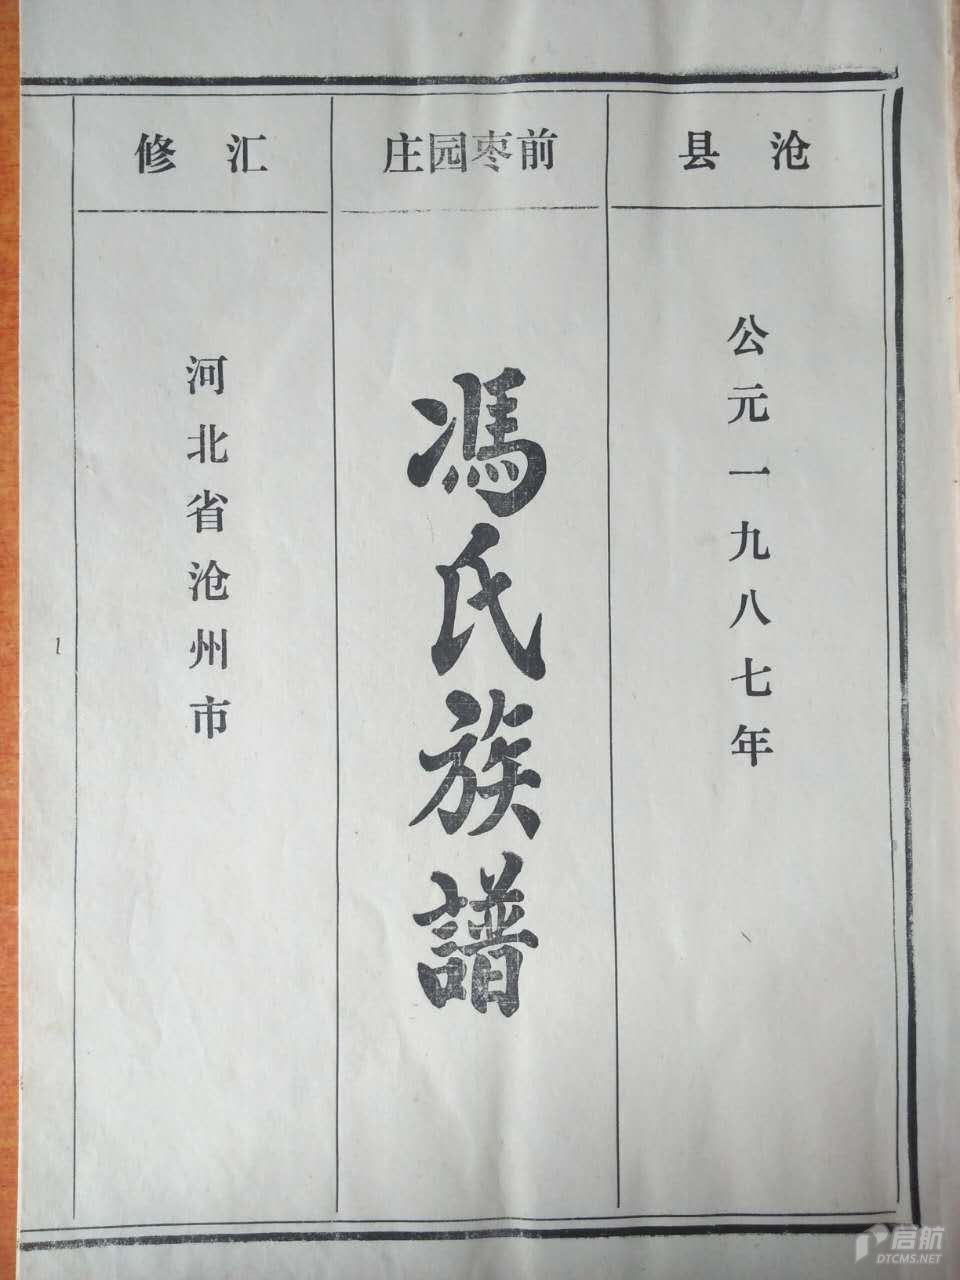 沧县
前枣园庄
汇修
公元一九八七年
馮氏族譜
河北省沧州市
启航
DTCMS.NET